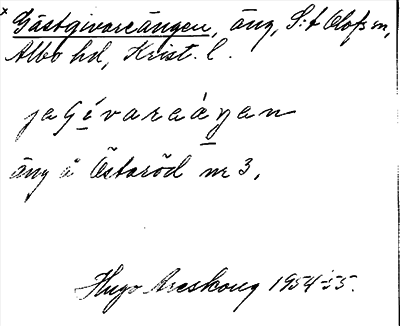 x Gästgivareängen, äng, S:t Olofs sn,
Albo hd, Krist. l.
jagívaraáŋan
äng å Östaröd nr 3.
Hugo Areskoug 1954-55.